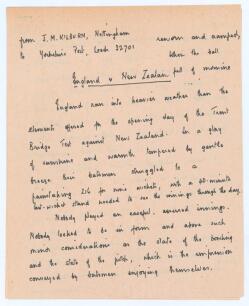 from J. M. KILBURN, Nottingham
to Yorkshire Post, Leeds 32701
when the ball
England v New Zealand full of
England ran into heavier weather than the
elements offered for the opening day of the Trent
Bridge Test against New Zealand. In a glow
of sunshine and warmth tempered by gentle
breeze their batsmen struggled to a
painstaking 216 for nine wickets, with a 60-minute
last-wicket stand needed to see the innings through the day.
Nobody played an easeful, assured innings.
Nobody looked to be in form and above such
minor considerations as the state of the bowling
and the state of the pitch, which is the impression
conveyed by batsmen enjoying themselves.